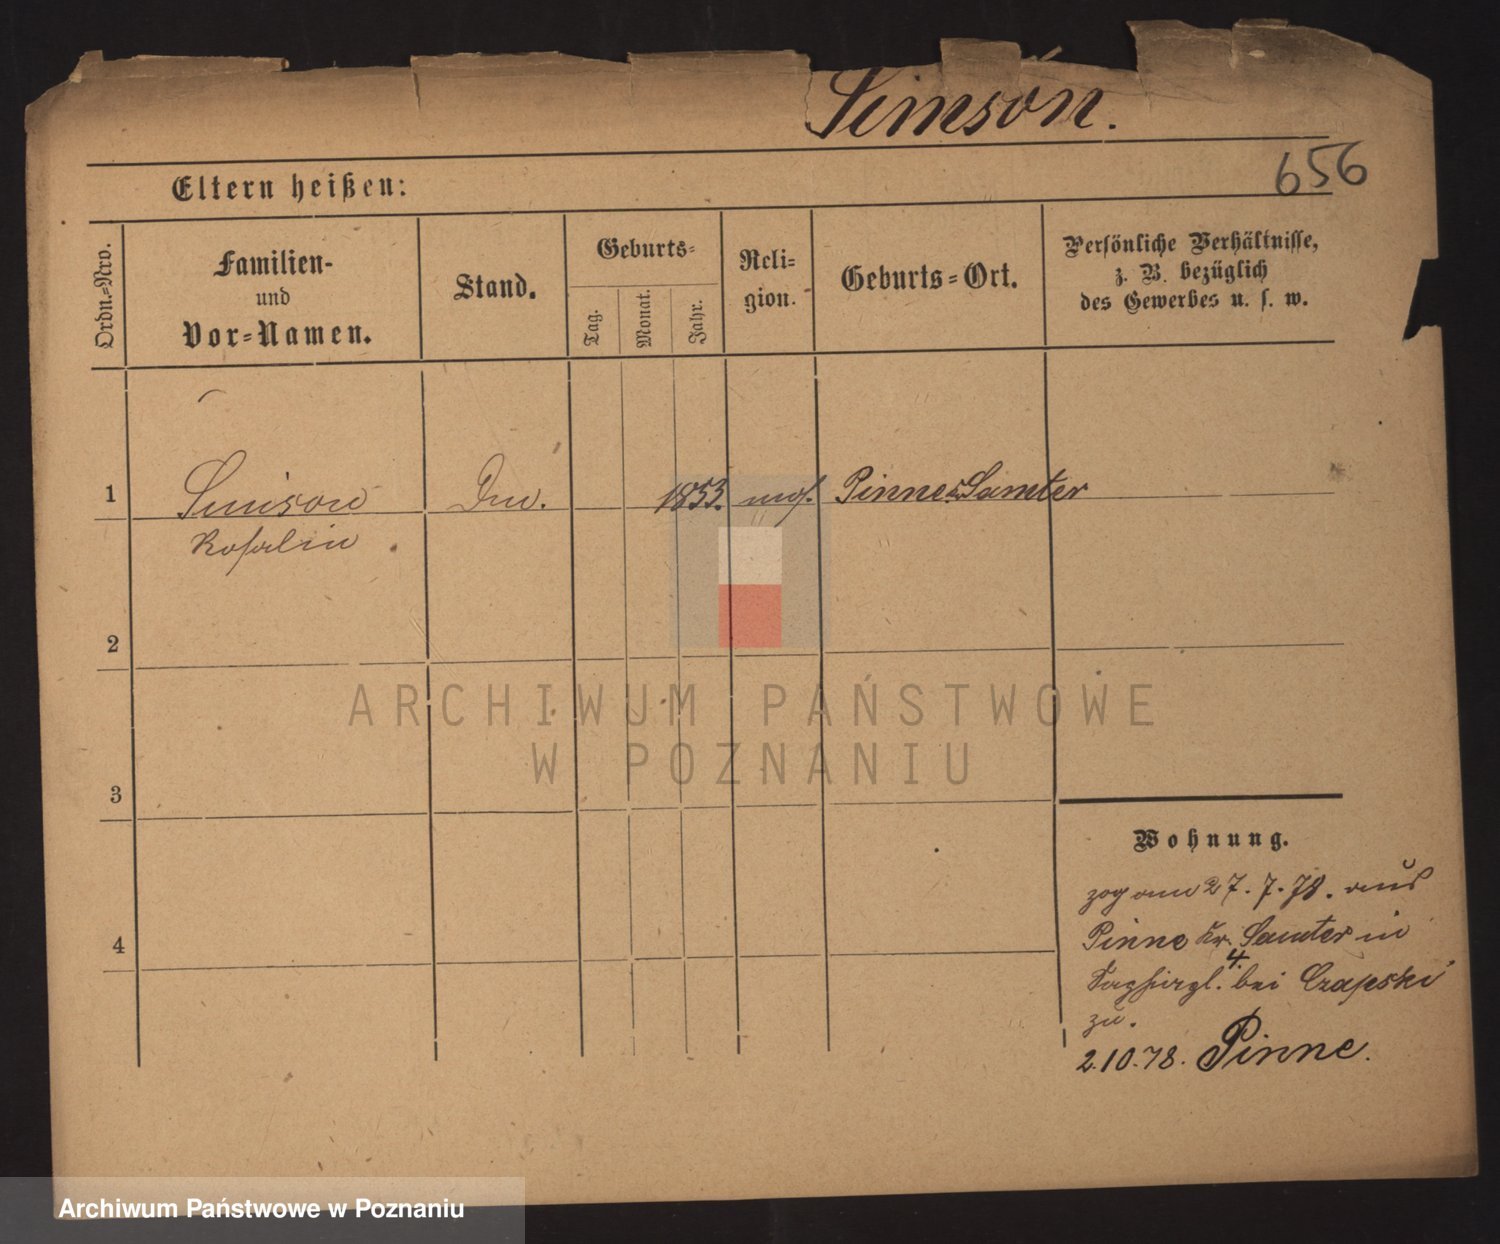 Simson.
656
Eltern heißen:
Ordn.=Nro.
Familien-
und
Vor=Namen.
Stand.
Geburts=
Tag.
Monat.
Jahr.
Reli=
gion.
Geburts=Ort.
Persönliche Verhältnisse,
z. B. bezüglich
des Gewerbes u. s. w.
1
Simson
Rosalie
1853.
mos.
Pinne Samter
2
3
4
ARCHIWUM PAŃSTWOWE
W POZNANIU
Wohnung.
zog am 27.7.78. aus
Pinne Kr. Samter in
4. bei Czapski
zu.
2.10.78. Pinne.
Archiwum Państwowe w Poznaniu